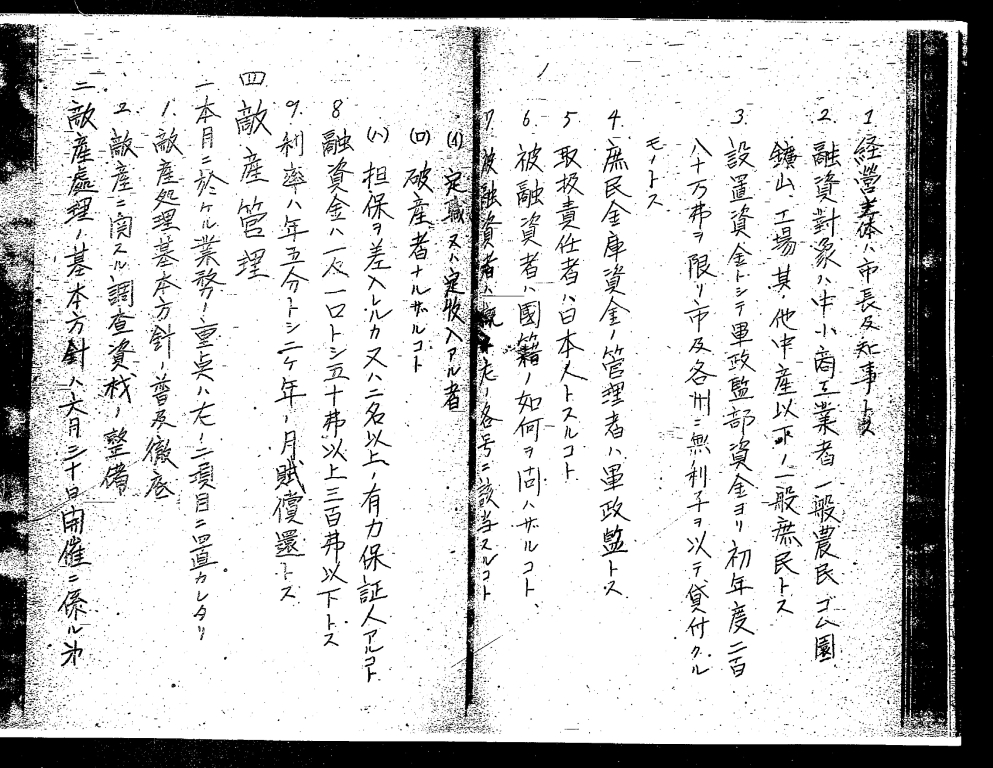 1. 経営主体ハ市長及知事トス
2. 融資對象ハ中小商工業者一般農民ゴム園
鑛山、工場其ノ他中産以下ノ一般庶民トス
3. 設置資金トシテ軍政監部資金ヨリ初年度二百
八十万弗ヲ限リ市及各州ニ無利子ヲ以テ貸付クル
モノトス
4. 庶民金庫資金ノ管理者ハ軍政監トス
5 取扱責任者ハ日本人トスルコト
6. 被融資者ハ國籍ノ如何ヲ問ハザルコト、
7. 被融資者ハ左ノ各号ニ該当スルコト
(イ) 定職又ハ定收入アル者
(ロ) 破産者ナルザルコト
(ハ) 担保ヲ差入レルカ又ハ二名以上ノ有力保証人アルコト
8 融資金ハ一人一口トシ五十弗以上三百弗以下トス
9. 利率ハ年五分トシ二ケ年ノ月賦償還トス
四 敵産管理
一 本月ニ於ケル業務ノ重点ハ左ノ二項目ニ置カレタリ
1. 敵産処理基本方針ノ普及徹底
2. 敵産ニ関スル調査資材ノ整備
二 敵産處理ノ基本方針ハ六月三十日開催ニ係ル第